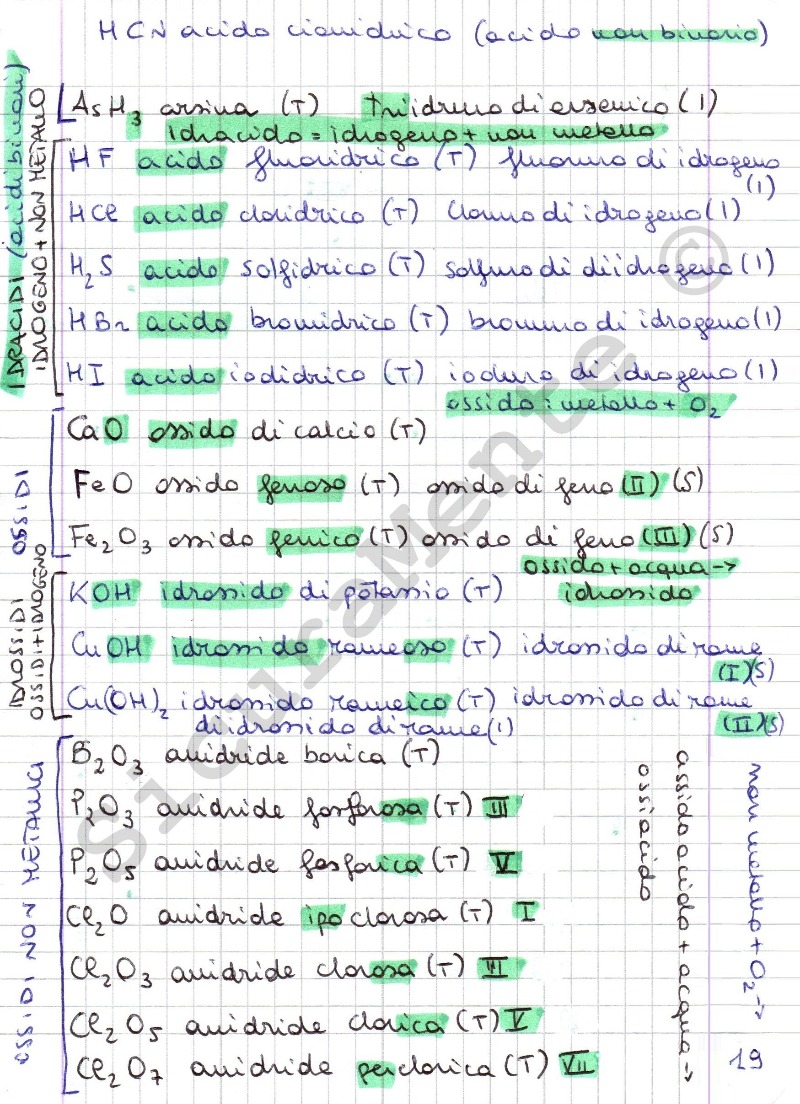 HCN acido cianidrico (acido non binario)
IDRACIDI (acidi binari)
IDROGENO + NON METALLO
AsH3 arsina (T) Triidruro di arsenico (1)
idracido = idrogeno + non metallo
HF acido fluoridrico (T) fluoruro di idrogeno (1)
HCl acido cloridrico (T) cloruro di idrogeno (1)
H2S acido solfidrico (T) solfuro di diidrogeno (1)
HBr acido bromidrico (T) bromuro di idrogeno (1)
HI acido iodidrico (T) ioduro di idrogeno (1)
ossido : metallo + O2
OSSIDI
CaO ossido di calcio (T)
FeO ossido ferroso (T) ossido di ferro (II) (S)
Fe2O3 ossido ferrico (T) ossido di ferro (III) (S)
ossido + acqua →
idrossido
IDROSSIDI
OSSIDI + IDROGENO
KOH idrossido di potassio (T)
CuOH idrossido rameoso (T) idrossido di rame (I) (S)
Cu(OH)2 idrossido rameico (T) idrossido di rame (II) (S)
diidrossido di rame (1)
OSSIDI NON METALLICI
B2O3 anidride borica (T)
P2O3 anidride fosforosa (T) III
P2O5 anidride fosforica (T) V
Cl2O anidride ipoclorosa (T) I
Cl2O3 anidride clorosa (T) III
Cl2O5 anidride clorica (T) V
Cl2O7 anidride perclorica (T) VII
non metallo + O2 →
ossido acido + acqua →
ossiacido
19
SicuraMente ©